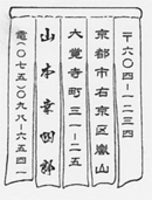 〒六〇四-一二三四
京都市右京区嵐山
大覚寺町三一-二五
山本幸四郎
電(〇七五)〇九八-六五四一